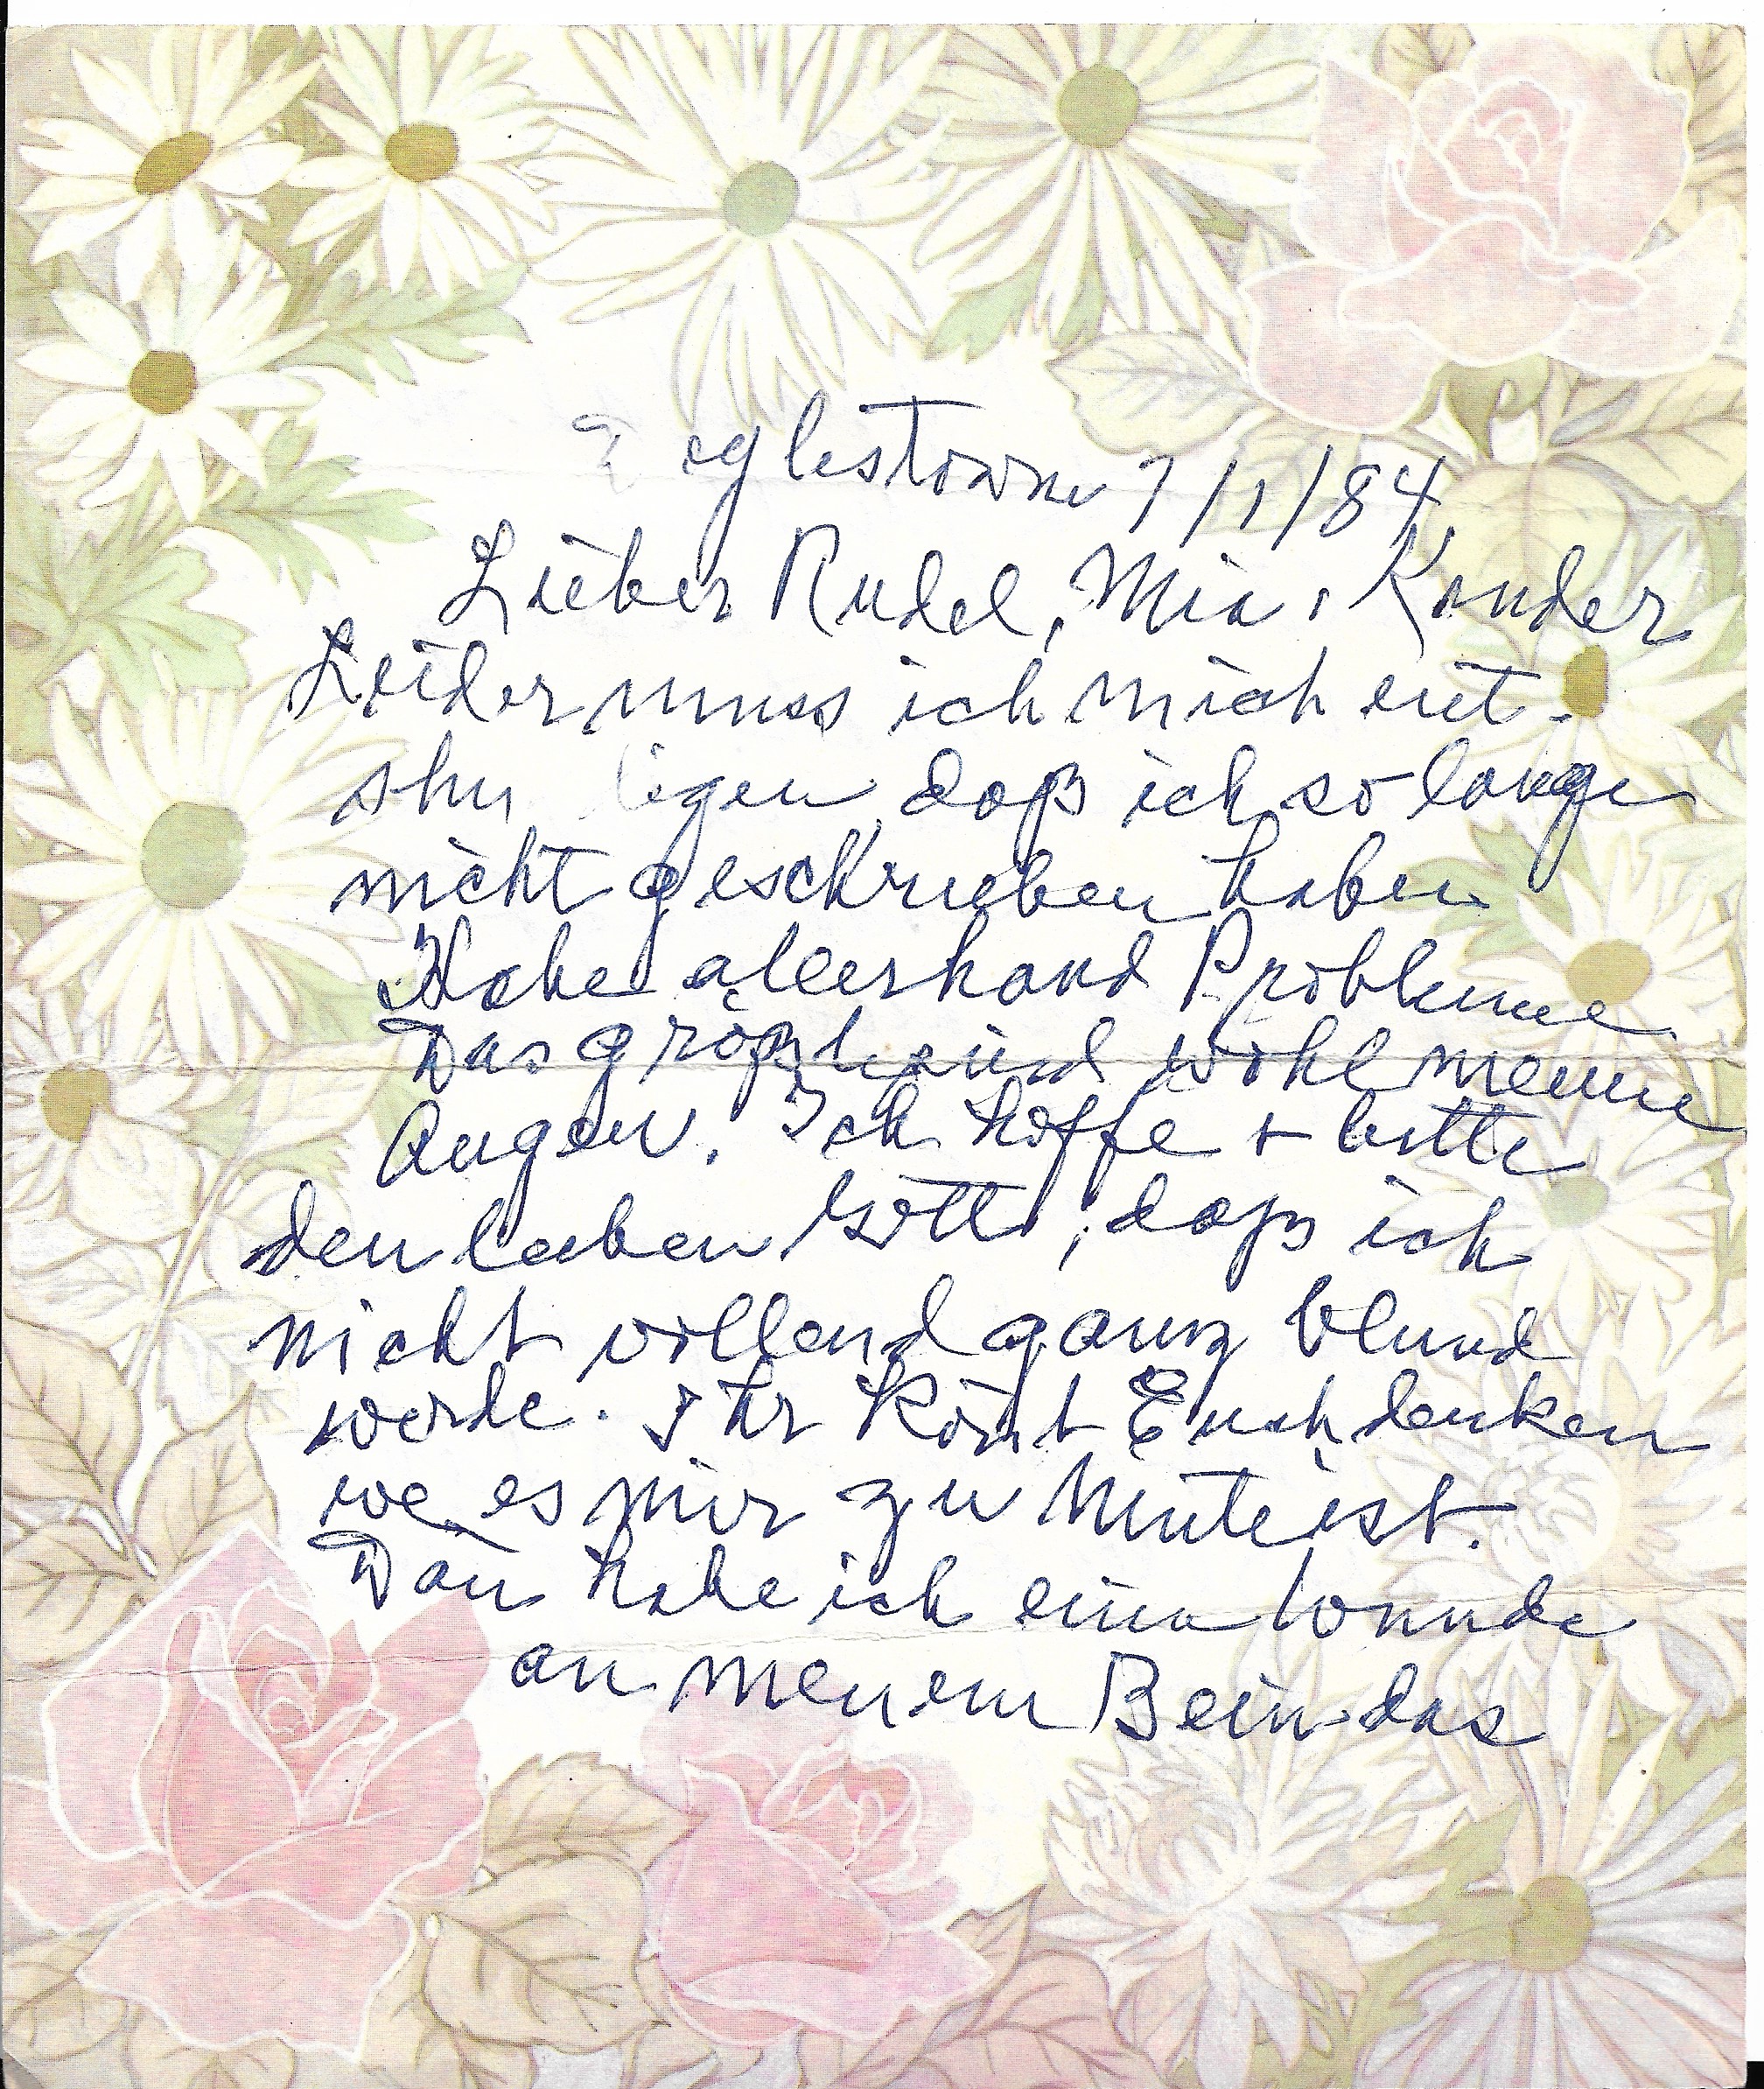 eglestown 7/1/84
Lieber Rudel, Mia, Kinder
Leider muss ich mich ent-
shu ligen daß ich so lange
nicht geschrieben habe.
Habe allerhand Probleme
Das größte sind wohl meine
Augen. Ich hoffe + bitte
den lieben Gott, daß ich
nicht vollend ganz blind
werde. Ihr könt Euch denken
we es mir zu Mute ist.
Dan habe ich eine Wunde
an meinem Bein das